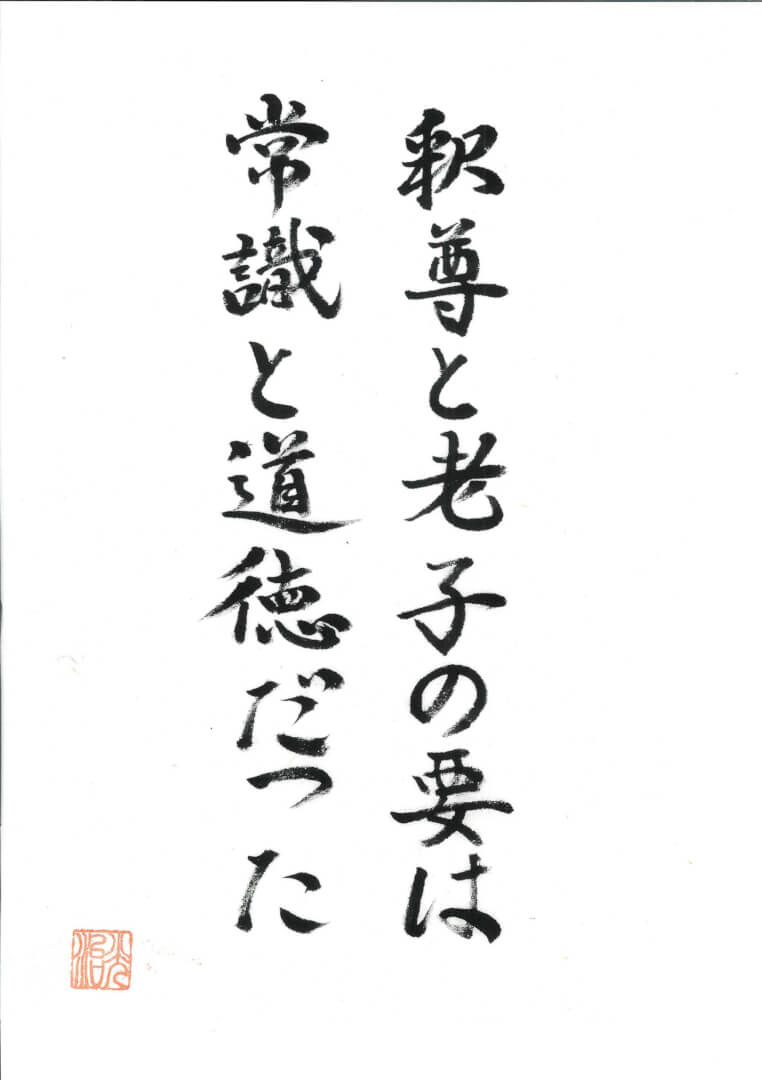 釈尊と老子の要は
常識と道徳だった